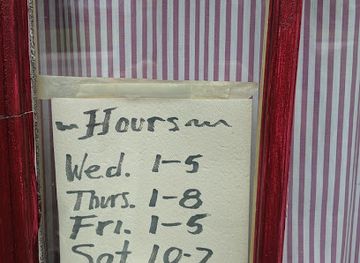 ~Hours~
Wed. 1-5
Thurs. 1-8
Fri. 1-5
Sat 10-2